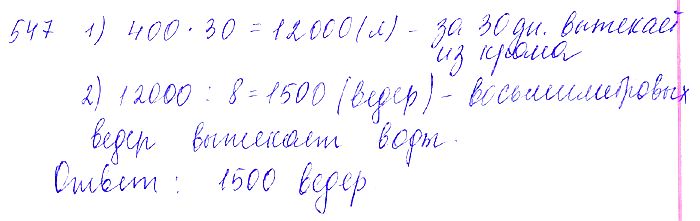 547 1) 400 · 30 = 12000 (л) - за 30 дн. вытекает
из крана
2) 12000 : 8 = 1500 (ведер) - восьмилитровых
ведер вытекает воды.
Ответ: 1500 ведер